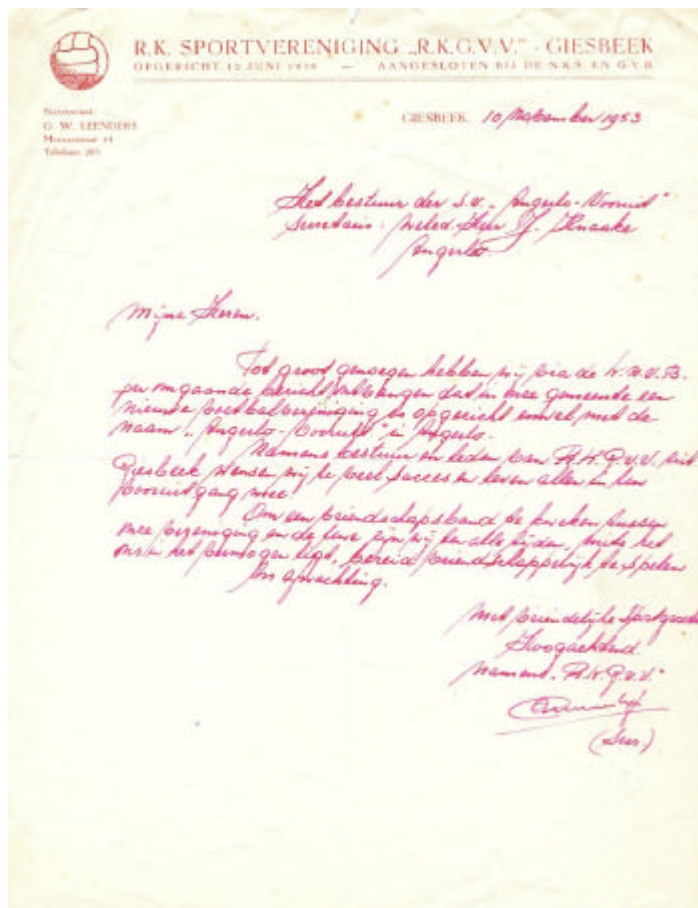 R.K. SPORTVERENIGING „R.K.G.V.V." - GIESBEEK
OPGERICHT 12 JUNI — AANGESLOTEN BIJ DE N.K.S. EN G.V.B.
Secretariaat:
G. W. LEENDERS
Telefoon
GIESBEEK, 10 November 1953
Het bestuur der s.v. „Angerlo-Vooruit"
Secretaris: Weled. Heer
Angerlo
Mijne Heren.
Tot groot genoegen hebben wij via de K.N.V.B.
per omgaande bericht ontvangen dat in Uwe gemeente een
nieuwe voetbalvereniging is opgericht met de
naam „Angerlo-Vooruit" in Angerlo.
Namens bestuur en leden van R.K.G.V.V. uit
Giesbeek wensen wij U veel succes en leven allen in Uw
vooruitgang mee.
Om een vriendschapsband te kweken tussen
Uwe vereniging en de onze zijn wij ten alle tijden, mits het
in het vermogen ligt, bereid vriendschappelijk te spelen
In afwachting.
Met vriendelijke
Hoogachtend.
Namens „R.K.G.V.V."
(Secr.)